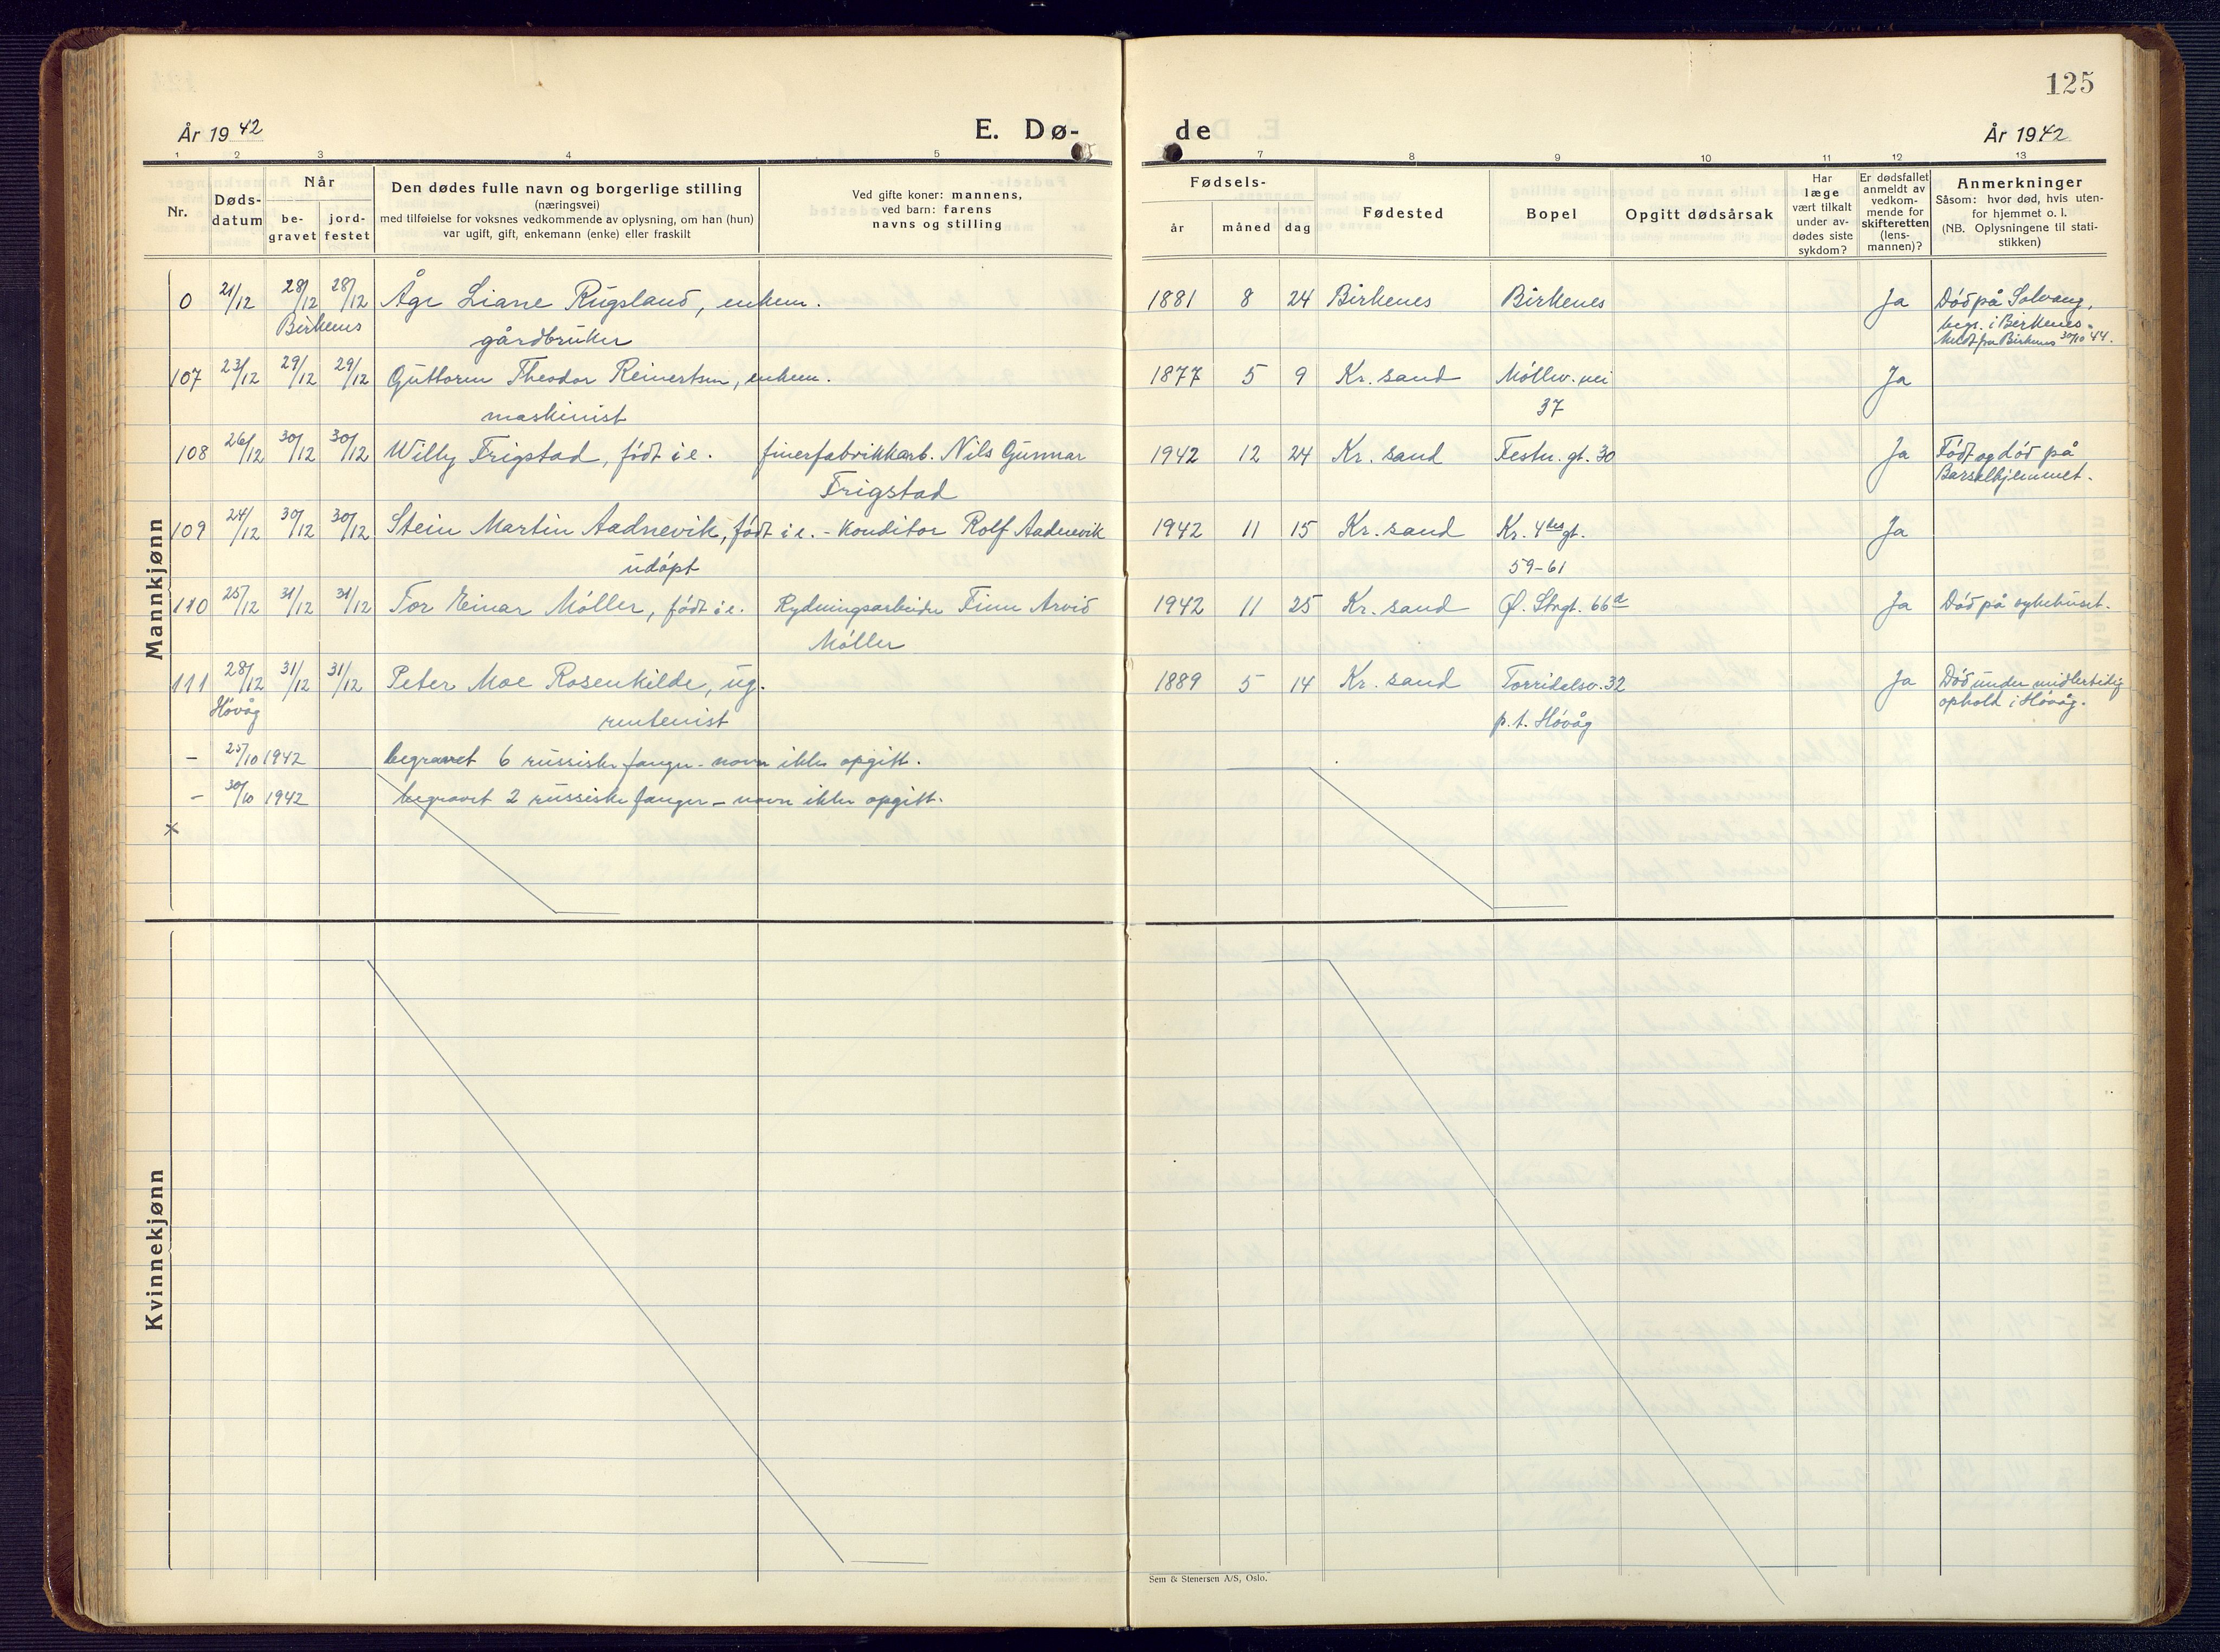 125
År 1942
E. Dø-
de
År 1942
1 2 3 4 5
7 8 9 10 11 12 13
Nr.
Døds-
datum
Når
be-
gravet
jord-
festet
Den dødes fulle navn og borgerlige stilling
(næringsvei)
med tilføielse for voksnes vedkommende av oplysning, om han (hun)
var ugift, gift, enkemann (enke) eller fraskilt
Ved gifte koner: mannens,
ved barn: farens
navns og stilling
Fødsels-
år måned dag
Fødested
Bopel
Opgitt dødsårsak
Har
læge
vært tilkalt
under av-
dødes siste
sykdom?
Er dødsfallet
anmeldt av
vedkom-
mende for
skifteretten
(lens-
mannen)?
Anmerkninger
Såsom: hvor død, hvis uten-
for hjemmet o. l.
(NB. Oplysningene til stati-
stikken)
Mannkjønn
0 21/12 28/12 28/12 Åge Liane Rugsland, enkem. 1881 8 24 Birkenes Birkenes Ja Død på Solvang,
Birkenes gårdbruker begr. i Birkenes.
Meldt fra Birkenes 30/10 44.
107 23/12 29/12 29/12 Guttorm Theodor Reinertsen, enkem. 1877 5 9 Kr. sand Møllev. vei Ja
maskinist 37
108 26/12 30/12 30/12 Willy Frigstad, født i e. finerfabrikkarb. Nils Gunnar 1942 12 24 Kr. sand Festn. gt. 30 Ja Født og død på
Frigstad Barselhjemmet.
109 24/12 30/12 30/12 Stein Martin Aadnevik, født i e. - Konditor Rolf Aadnevik 1942 11 15 Kr. sand Kr. 4des gt. Ja
udøpt 59-61
110 25/12 31/12 31/12 Tor Einar Møller, født i e. Rydningsarbeider Finn Arvid 1942 11 25 Kr. sand Ø. Strgt. 66a Ja Død på sykehuset.
Møller
111 28/12 31/12 31/12 Peter Moe Rosenkilde, ug. 1889 5 14 Kr. sand Torridalsv. 32 Ja Død under midlertidig
Høvåg rentenist p.t. Høvåg ophold i Høvåg.
- 25/10 1942 begravet 6 russiske fanger - navn ikke opgitt.
- 30/10 1942 begravet 2 russiske fanger - navn ikke opgitt.
x
Kvinnekjønn
Sem & Stenersen A/S, Oslo.